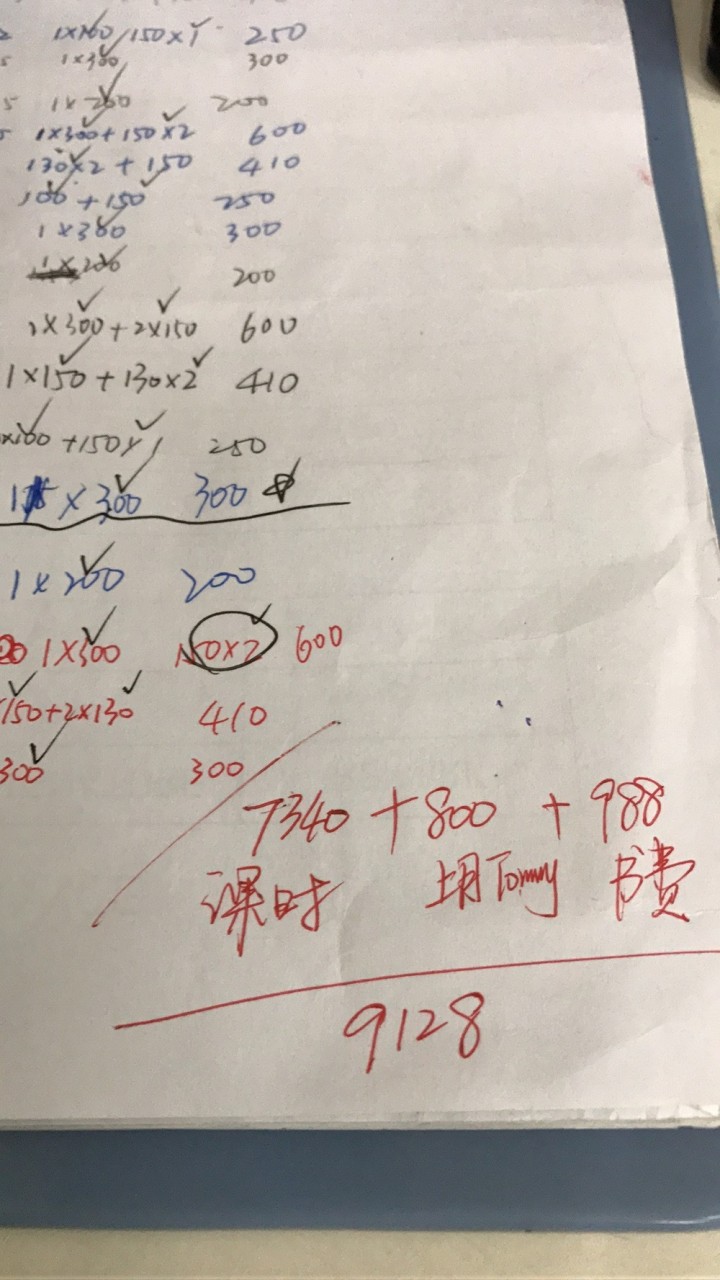 1×100/150×1 250
5 1×300 300
5 1×200 200
5 1×300+150×2 600
130×2+150 410
100+150 250
1×300 300
1×200 200
1×300+2×150 600
1×150+130×2 410
×100+150×1 250
1 ×300 300
1×200 200
1×300 150×2 600
150+2×130 410
300 300
7340+800+988
课时 上月Tommy 书费
9128